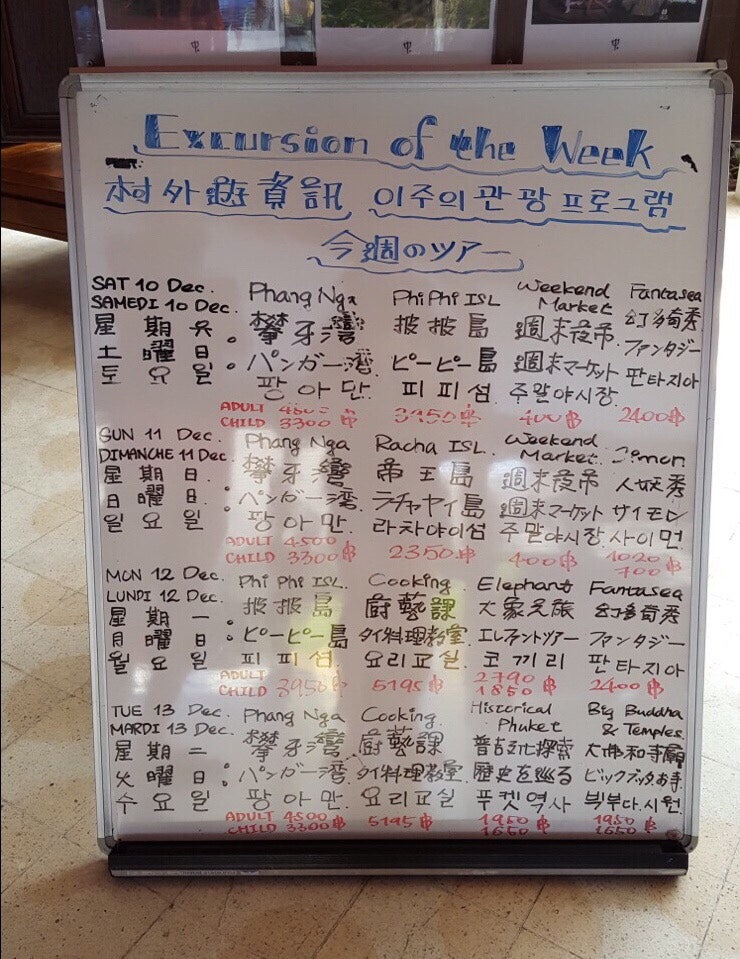 Excursion of the Week
村外遊資訊 이주의관광프로그램
今週のツアー
SAT 10 Dec. Phang Nga Phi Phi ISL Weekend Market Fantasea
SAMEDI 10 Dec.
星期六: 攀牙灣 披披島 週末夜市 幻多奇秀
土曜日: パンガー湾 ピーピー島 週末マーケット ファンタジー
토요일 팡아만 피피섬 주말야시장 판타지아
ADULT 3950฿ 400฿ 2400฿
CHILD 3300฿
SUN 11 Dec. Phang Nga Racha ISL. Weekend Market
DIMANCHE 11 Dec.
星期日: 攀牙灣 帝王島 週末夜市 人妖秀
日曜日: パンガー湾 ラチャヤイ島 週末マーケット サイモン
일요일 팡아만 라차야이섬 주말야시장 사이먼
ADULT 4500 2350฿ 400฿ 1020
CHILD 3300฿ 700฿
MON 12 Dec. Phi Phi ISL. Cooking Elephant Fantasea
LUNDI 12 Dec.
星期一: 披披島 廚藝課 大象之旅 幻多奇秀
月曜日: ピーピー島 タイ料理教室 エレファントツアー ファンタジー
월요일 피피섬 요리교실 코끼리 판타지아
ADULT 3950฿ 5195฿ 2790 2400฿
CHILD 1850฿
TUE 13 Dec. Phang Nga Cooking Historical Phuket Big Buddha & Temples
MARDI 13 Dec.
星期二: 攀牙灣 廚藝課 普吉文化探索 大佛和寺廟
火曜日: パンガー湾 タイ料理教室 歴史を巡る ビックブッダ,お寺
수요일 팡아만 요리교실 푸켓역사 빅부다.사원
ADULT 4500 5195฿ 1950฿ 1950฿
CHILD 3300฿ 1650฿ 1650฿